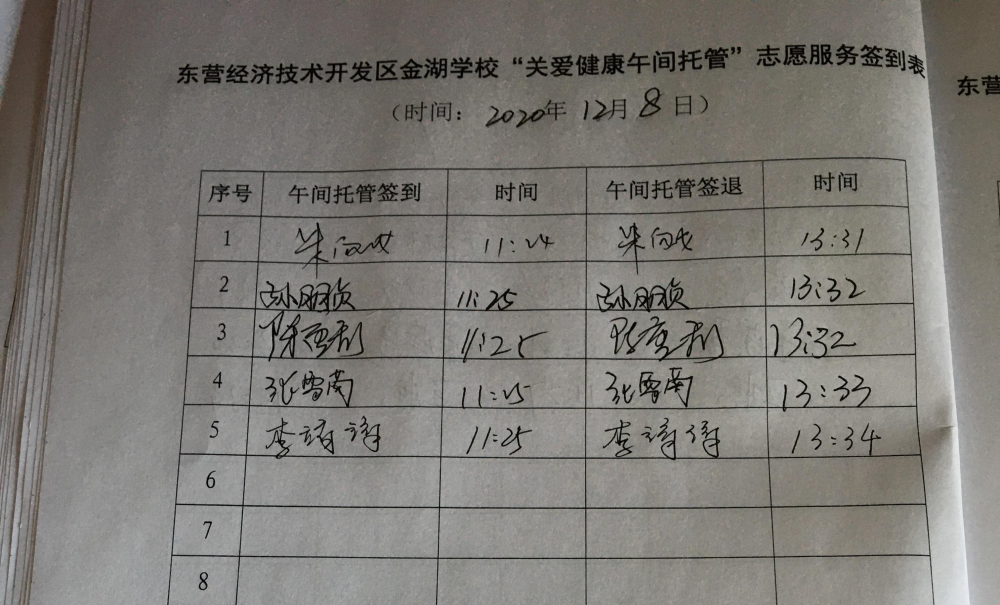 东营经济技术开发区金湖学校“关爱健康午间托管”志愿服务签到表
东营
（时间：2020年12月8日）
序号 午间托管签到 时间 午间托管签退 时间
1 11:24 13:31
2 孙明贞 11:25 孙明贞 13:32
3 11:25 13:32
4 张雪南 11:25 张雪南 13:33
5 李 11:25 李 13:34
6
7
8